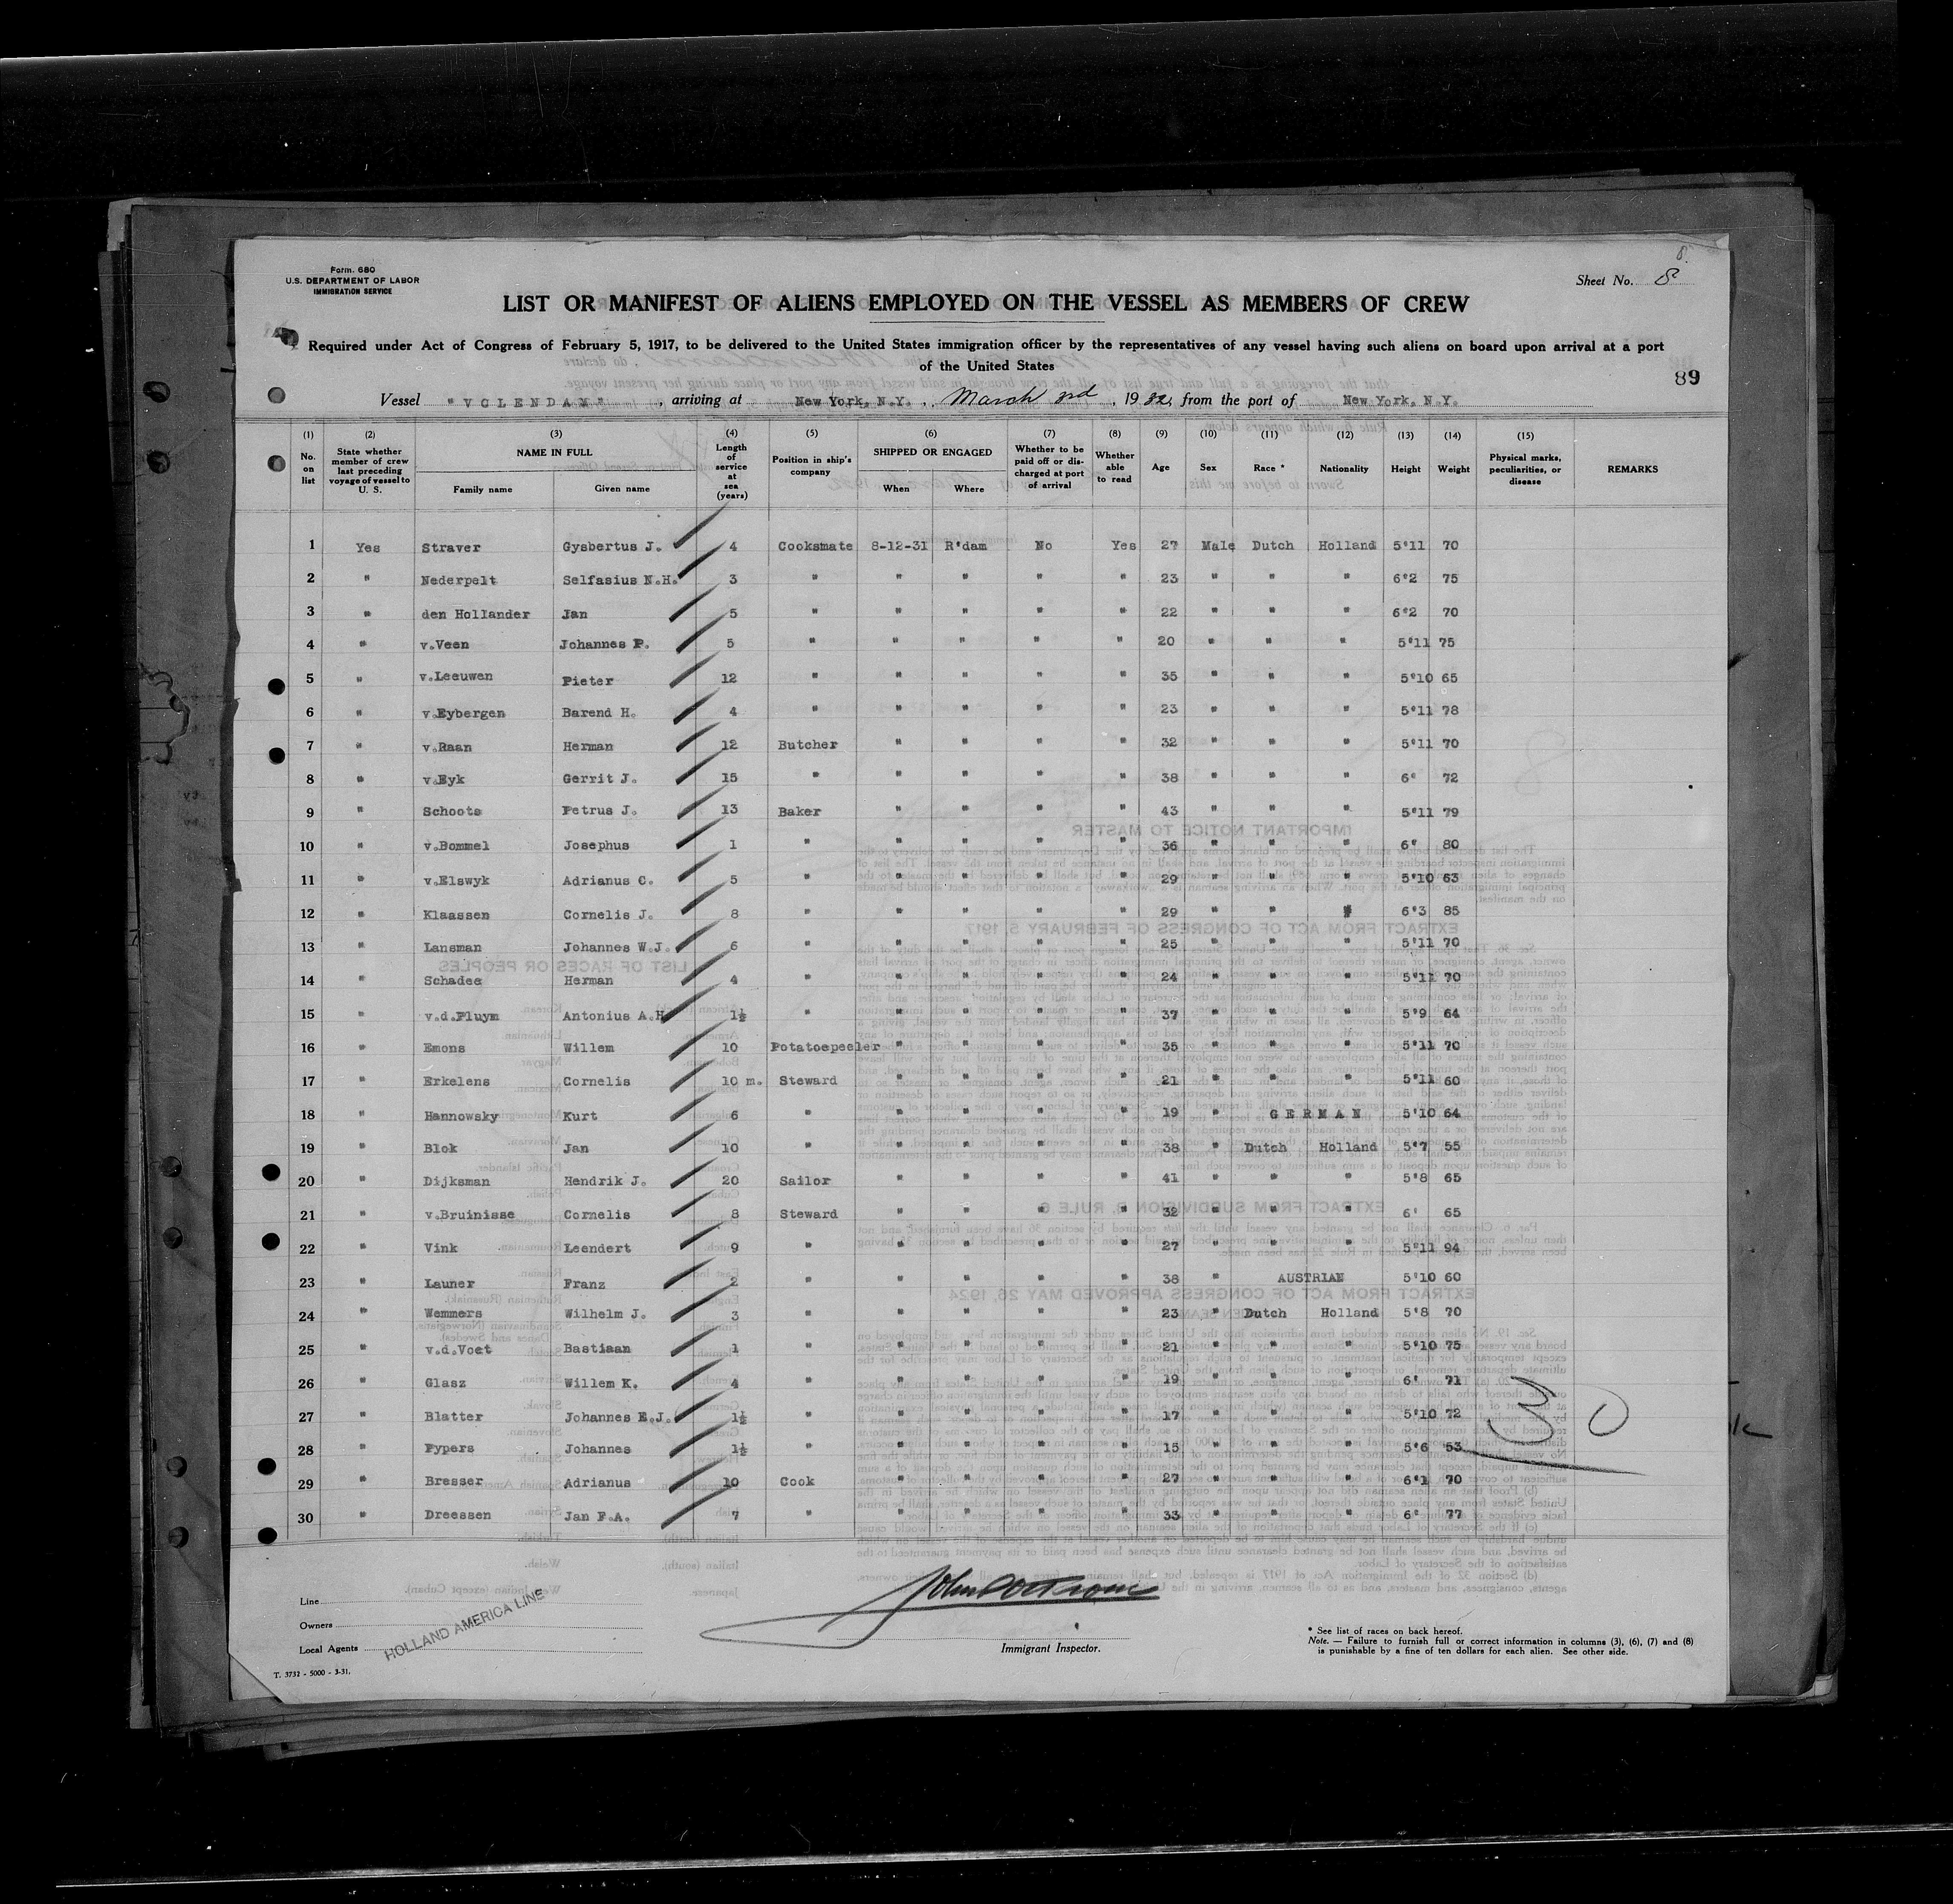 Form. 680
U.S. DEPARTMENT OF LABOR
IMMIGRATION SERVICE
Sheet No. 8
8.
LIST OR MANIFEST OF ALIENS EMPLOYED ON THE VESSEL AS MEMBERS OF CREW
Required under Act of Congress of February 5, 1917, to be delivered to the United States immigration officer by the representatives of any vessel having such aliens on board upon arrival at a port
of the United States
89
Vessel "VOLENDAM", arriving at New York, N.Y., March 3rd, 1932, from the port of New York, N.Y.
(1) No. on list (2) State whether member of crew last preceding voyage of vessel to U. S. (3) NAME IN FULL Family name Given name (4) Length of service at sea (years) (5) Position in ship's company (6) SHIPPED OR ENGAGED When Where (7) Whether to be paid off or discharged at port of arrival (8) Whether able to read (9) Age (10) Sex (11) Race * (12) Nationality (13) Height (14) Weight (15) Physical marks, peculiarities, or disease REMARKS
1 Yes Straver Gysbertus J. 4 Cooksmate 8-12-31 R'dam No Yes 27 Male Dutch Holland 5'11 70
2 " Nederpelt Selfasius N.H. 3 " " " " " 23 " " " 6'2 75
3 " den Hollander Jan 5 " " " " " 22 " " " 6'2 70
4 " v.Veen Johannes P. 5 " " " " " 20 " " " 5'11 75
5 " v.Leeuwen Pieter 12 " " " " " 35 " " " 5'10 65
6 " v.Eybergen Barend H. 4 " " " " " 23 " " " 5'11 78
7 " v.Raan Herman 12 Butcher " " " " 32 " " " 5'11 70
8 " v.Eyk Gerrit J. 15 " " " " " 38 " " " 6' 72
9 " Schoots Petrus J. 13 Baker " " " " 43 " " " 5'11 79
10 " v.Bommel Josephus 1 " " " " " 36 " " " 6' 80
11 " v.Elswyk Adrianus C. 5 " " " " " 29 " " " 5'10 63
12 " Klaassen Cornelis J. 8 " " " " " 29 " " " 6'3 85
13 " Lansman Johannes W.J. 6 " " " " " 25 " " " 5'11 70
14 " Schadee Herman 4 " " " " " 24 " " " 5'11 70
15 " v.d.Pluym Antonius A.H. 1½ " " " " " 37 " " " 5'9 64
16 " Emons Willem 10 Potatoepeeler " " " " 35 " " " 5'11 70
17 " Erkelens Cornelis 10 m. Steward " " " " 21 " " " 5'11 60
18 " Hannowsky Kurt 6 " " " " " 19 " GERMAN 5'10 64
19 " Blok Jan 10 " " " " " 38 " Dutch Holland 5'7 55
20 " Dijksman Hendrik J. 20 Sailor " " " " 41 " " " 5'8 65
21 " v.Bruinisse Cornelis 8 Steward " " " " 32 " " " 6' 65
22 " Vink Leendert 9 " " " " " 27 " " " 5'11 94
23 " Launer Franz 2 " " " " " 38 " AUSTRIAN 5'10 60
24 " Wemmers Wilhelm J. 3 " " " " " 23 " Dutch Holland 5'8 70
25 " v.d.Voet Bastiaan 1 " " " " " 21 " " " 5'10 75
26 " Glasz Willem K. 4 " " " " " 19 " " " 6' 71
27 " Blatter Johannes E.J. 1½ " " " " " 17 " " " 5'10 72
28 " Pypers Johannes 1½ " " " " " 15 " " " 5'6 53
29 " Bresser Adrianus 10 Cook " " " " 27 " " " 6'1 70
30 " Dreessen Jan F.A. 7 " " " " " 33 " " " 6' 77
30
Line
Owners
Local Agents
HOLLAND AMERICA LINE
Immigrant Inspector.
* See list of races on back hereof.
Note. — Failure to furnish full or correct information in columns (3), (6), (7) and (8)
is punishable by a fine of ten dollars for each alien. See other side.
T. 3732 - 5000 - 3-31.